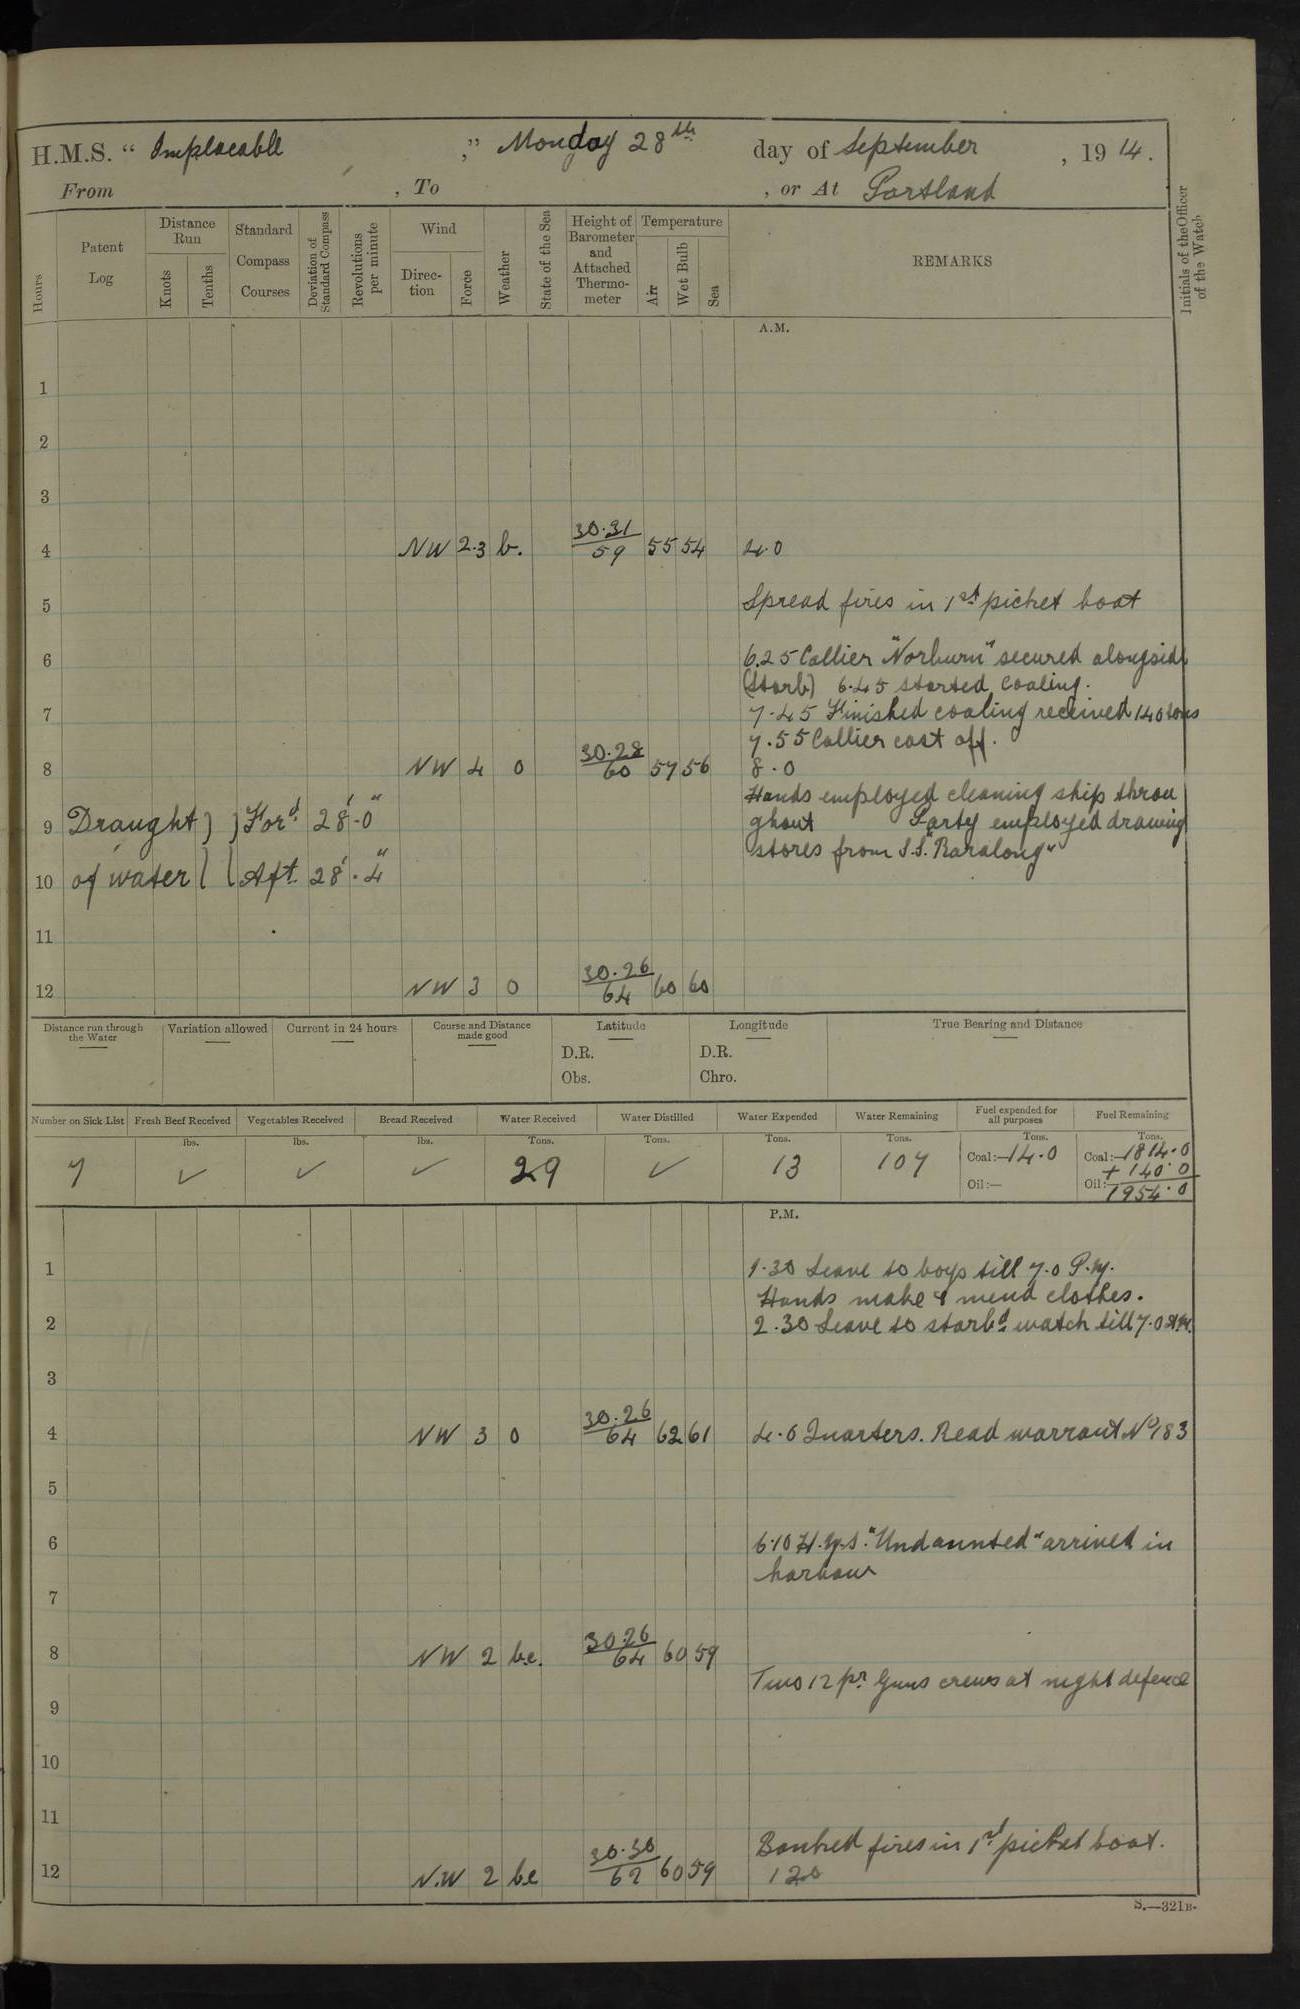 H.M.S. " Implacable ," Monday 28th day of September , 1914.
From , To , or At Portland
Hours
Patent Log
Distance Run
Knots
Tenths
Standard Compass Courses
Deviation of Standard Compass
Revolutions per minute
Wind
Direction
Force
Weather
State of the Sea
Height of Barometer and Attached Thermometer
Temperature
Air
Wet Bulb
Sea
REMARKS
Initials of the Officer of the Watch
A.M.
1
2
3
4 NW 2.3 b. 30.31/59 55 54 4.0
5 Spread fires in 1st picket boat
6 6.25 Collier "Norburn" secured alongside
(Starb) 6.45 started coaling.
7 7.45 Finished coaling received 140 tons
7.55 Collier cast off.
8 NW 4 0 30.28/60 57 56 8.0
Hands employed cleaning ship throu
9 Draught } } Ford 28'-0" ghout Party employed drawing
stores from S.S. "Baralong"
10 of water } } Aft. 28'.4"
11
12 NW 3 0 30.26/64 60 60
Distance run through the Water
Variation allowed
Current in 24 hours
Course and Distance made good
Latitude
D.R.
Obs.
Longitude
D.R.
Chro.
True Bearing and Distance
Number on Sick List Fresh Beef Received Vegetables Received Bread Received Water Received Water Distilled Water Expended Water Remaining Fuel expended for all purposes Fuel Remaining
lbs. lbs. lbs. Tons. Tons. Tons. Tons. Tons. Tons.
7 ✓ ✓ ✓ 29 ✓ 13 107 Coal:—14.0 Coal:—1814.0
+ 140.0
Oil:— Oil:—1954.0
P.M.
1 1.30 Leave to boys till 7.0 P.M.
Hands make & mend clothes.
2 2.30 Leave to starbd watch till 7.0 AM.
3
4 NW 3 0 30.26/64 62 61 4.0 Quarters. Read warrant No 183
5
6 6.10 H.M.S. "Undaunted" arrived in
harbour
7
8 NW 2 b.c. 30.26/64 60 59
Two 12 pr Guns crews at night defence
9
10
11
Banked fires in 1st picket boat.
12 N.W 2 bc 30.30/62 60 59 120
S.—321B.